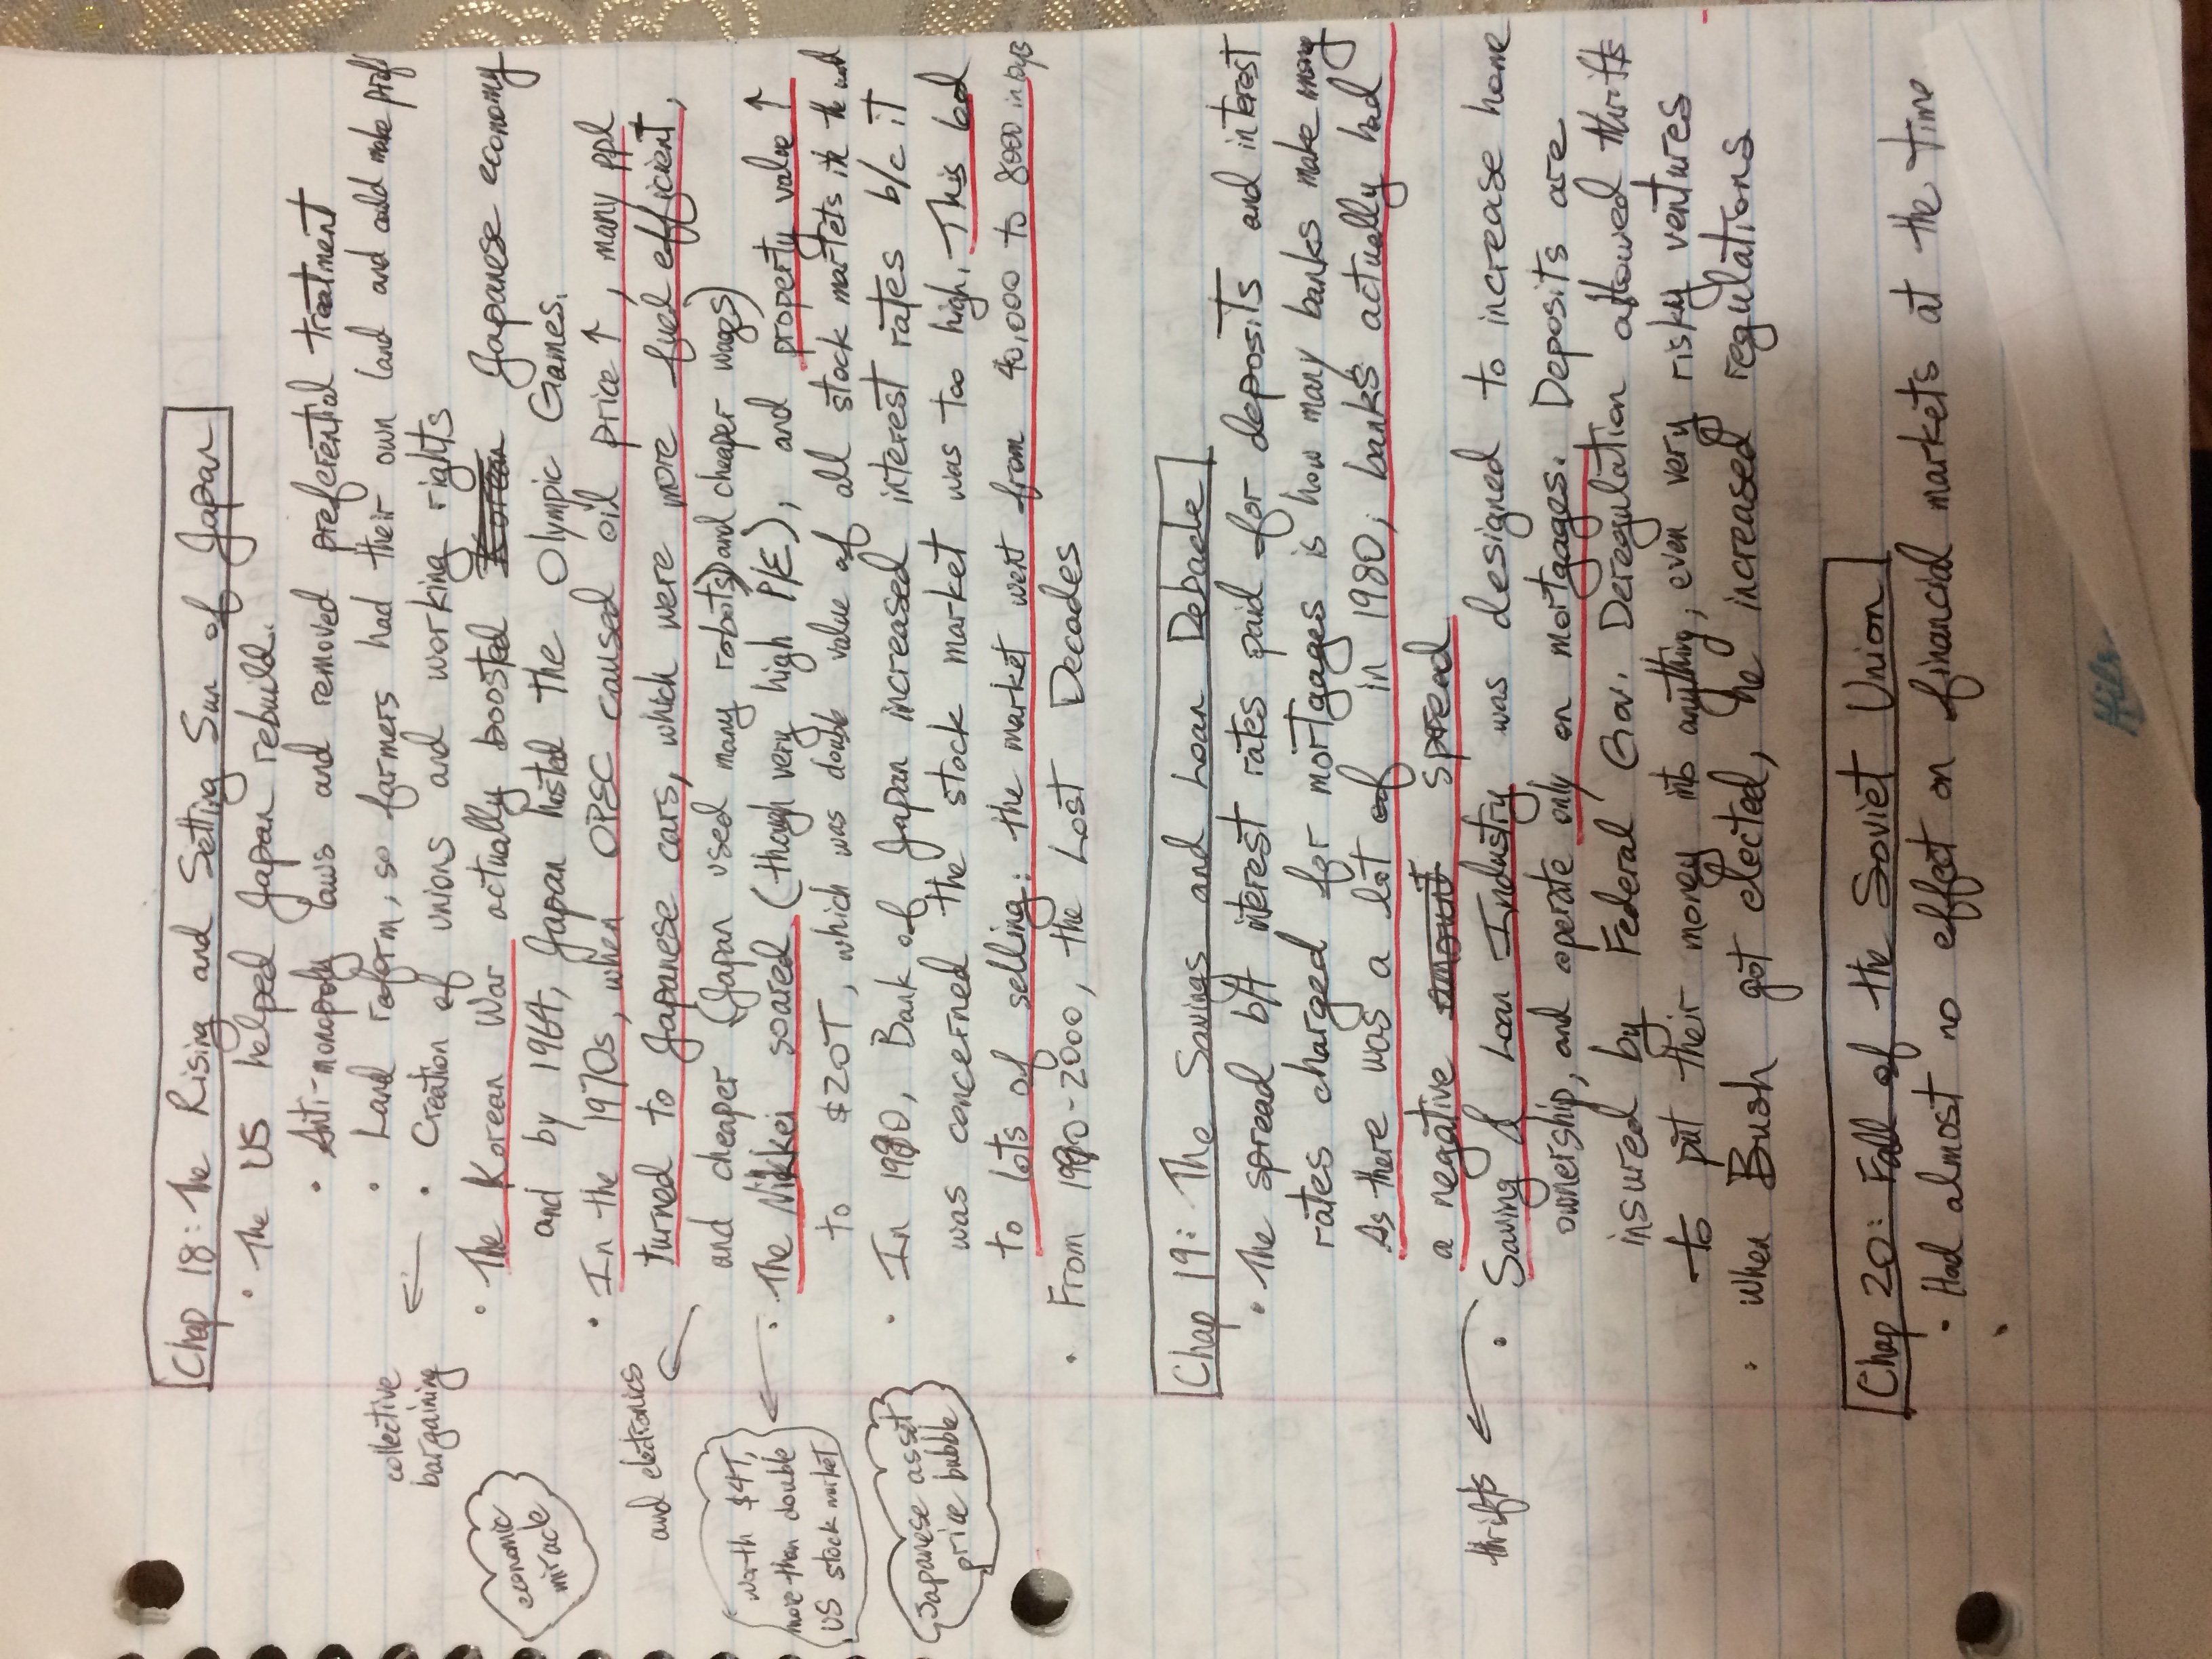 Chap 18: The Rising and Setting Sun of Japan
• The US helped Japan rebuild.
• Anti-monopoly laws and removed preferential treatment
• Land reform, so farmers had their own land and could make prof
collective
bargaining
• Creation of unions and working rights
economic
miracle
• The Korean War actually boosted Korean Japanese economy
and by 1964, Japan hosted the Olympic Games.
• In the 1970s, when OPEC caused oil price ↑, many ppl
and electronics
turned to Japanese cars, which were more fuel efficient,
and cheaper (Japan used many robots) and cheaper wages)
worth $4T,
more than double
US stock market
• The Nikkei soared (though very high P/E), and property value ↑
to $20T, which was double value of all stock martets in the
Japanese asset
price bubble
• In 1990, Bank of Japan increased interest rates b/c it
was concerned the stock market was too high. This led
to lots of selling: the market went from 40,000 to 8000 in
• From 1990-2000, the Lost Decades
Chap 19: The Savings and Loan Debacle
• The spread b/t interest rates paid for deposits and interest
rates charged for mortgages is how many banks make money
As there was a lot of in 1980, banks actually had
a negative amount spread
thrifts
• Saving & Loan Industry was designed to increase home
ownership, and operate only on mortgages. Deposits are
insured by Federal Gov. Deregulation allowed thrifts
to put their money into anything, even very risky ventures
• When Bush got elected, he increased regulations
Chap 20: Fall of the Soviet Union
• Had almost no effect on financial markets at the time
•